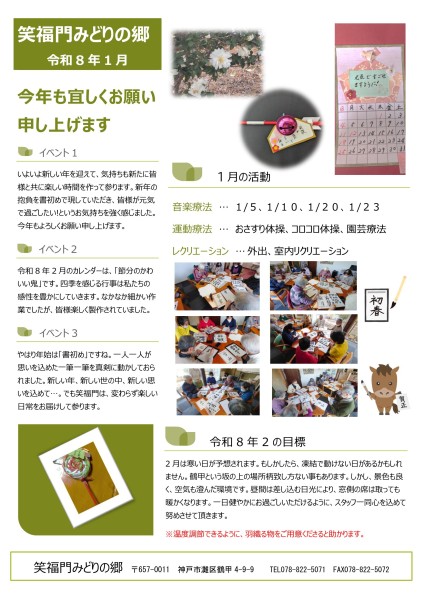 笑福門みどりの郷
令和８年１月
今年も宜しくお願い
申し上げます
イベント１
いよいよ新しい年を迎えて、気持ちも新たに皆
様と共に楽しい時間を作って参ります。新年の
抱負を書初めで現していただき、皆様が元気
で過ごしたい!というお気持ちを強く感じました。
今年もよろしくお願い申し上げます。
イベント２
令和８年２月のカレンダーは、「節分のかわ
いい鬼」です。四季を感じる行事は私たちの
感性を豊かにしていきます。なかなか細かい作
業でしたが、皆様楽しく製作されていました。
イベント３
やはり年始は「書初め」ですね。一人一人が
思いを込めた一筆一筆を真剣に動かしておら
れました。新しい年、新しい世の中、新しい思
いを込めて…。でも笑福門は、変わらず楽しい
日常をお届けして参ります。
１月の活動
音楽療法 … １/５、１/１０、１/２０、１/２３
運動療法 … おさすり体操、コロコロ体操、園芸療法
レクリエーション … 外出、室内リクリエーション
初春
賀正
令和８年２の目標
２月は寒い日が予想されます。もしかしたら、凍結で動けない日があるかもしれ
ません。鶴甲という坂の上の場所柄致し方ない事もあります。しかし、景色も良
く、空気も澄んだ環境です。昼間は差し込む日光により、窓側の席は取っても
暖かくなります。一日健やかにお過ごしいただけるように、スタッフ一同心を込めて
努めさせて頂きます。
※温度調節できるように、羽織る物をご用意くださると助かります。
笑福門みどりの郷 〒657-0011 神戸市灘区鶴甲 4-9-9 TEL078-822-5071 FAX078-822-5072